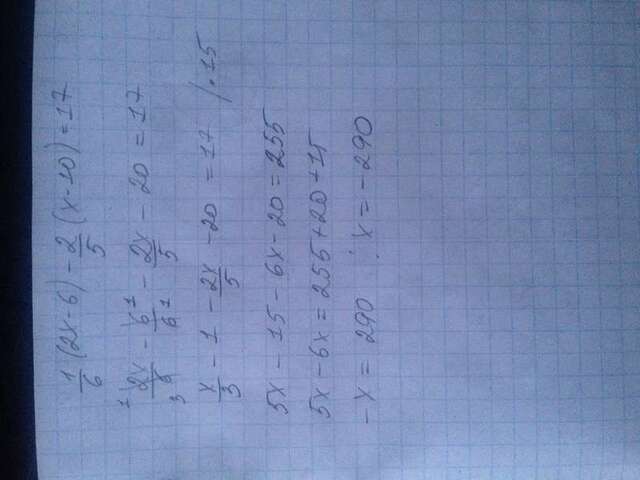 1/6 (2x-6) - 2/5 (x-10) = 17
2x/6 - 6/6 - 2x/5 - 20 = 17
x/3 - 1 - 2x/5 - 20 = 17 /·15
5x - 15 - 6x - 20 = 255
5x - 6x = 255 + 20 + 15
-x = 290 x = -290